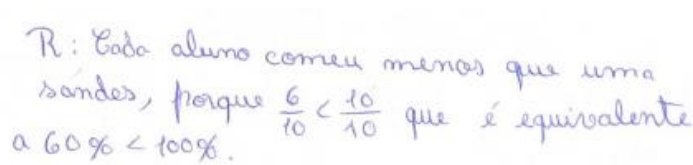 R: Cada aluno comeu menos que uma
sandes, porque 6/10 < 10/10 que é equivalente
a 60% < 100%.